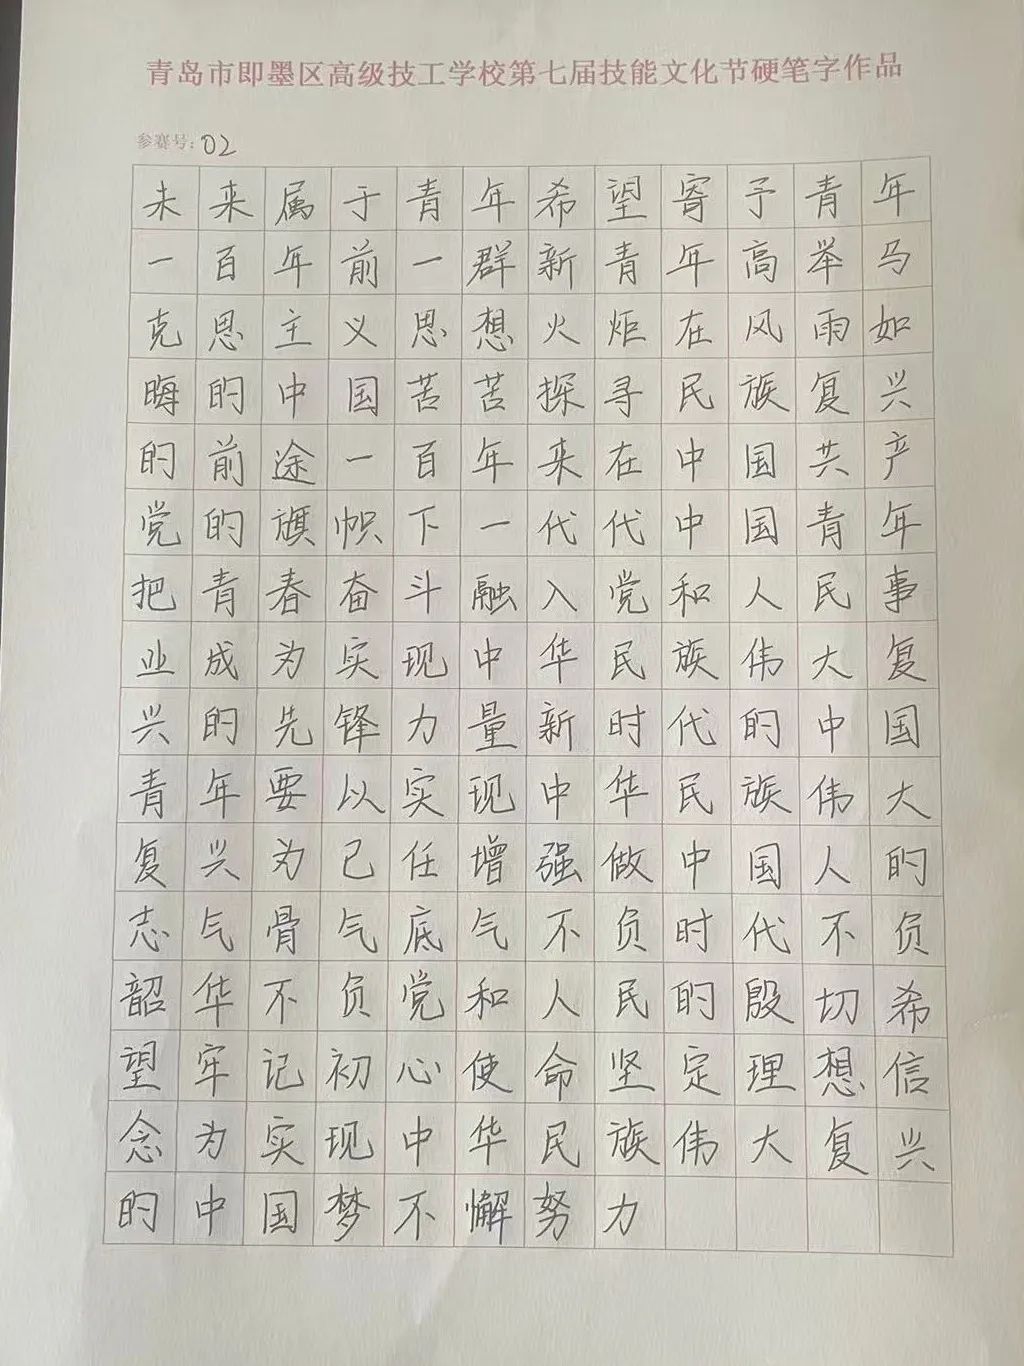 青岛市即墨区高级技工学校第七届技能文化节硬笔字作品
参赛号：02
未来属于青年希望寄予青年
一百年前一群新青年高举马
克思主义思想火炬在风雨如
晦的中国苦苦探寻民族复兴
的前途一百年来在中国共产
党的旗帜下一代代中国青年
把青春奋斗融入党和人民事
业成为实现中华民族伟大复
兴的先锋力量新时代的中国
青年要以实现中华民族伟大
复兴为己任增强做中国人的
志气骨气底气不负时代不负
韶华不负党和人民的殷切希
望牢记初心使命坚定理想信
念为实现中华民族伟大复兴
的中国梦不懈努力